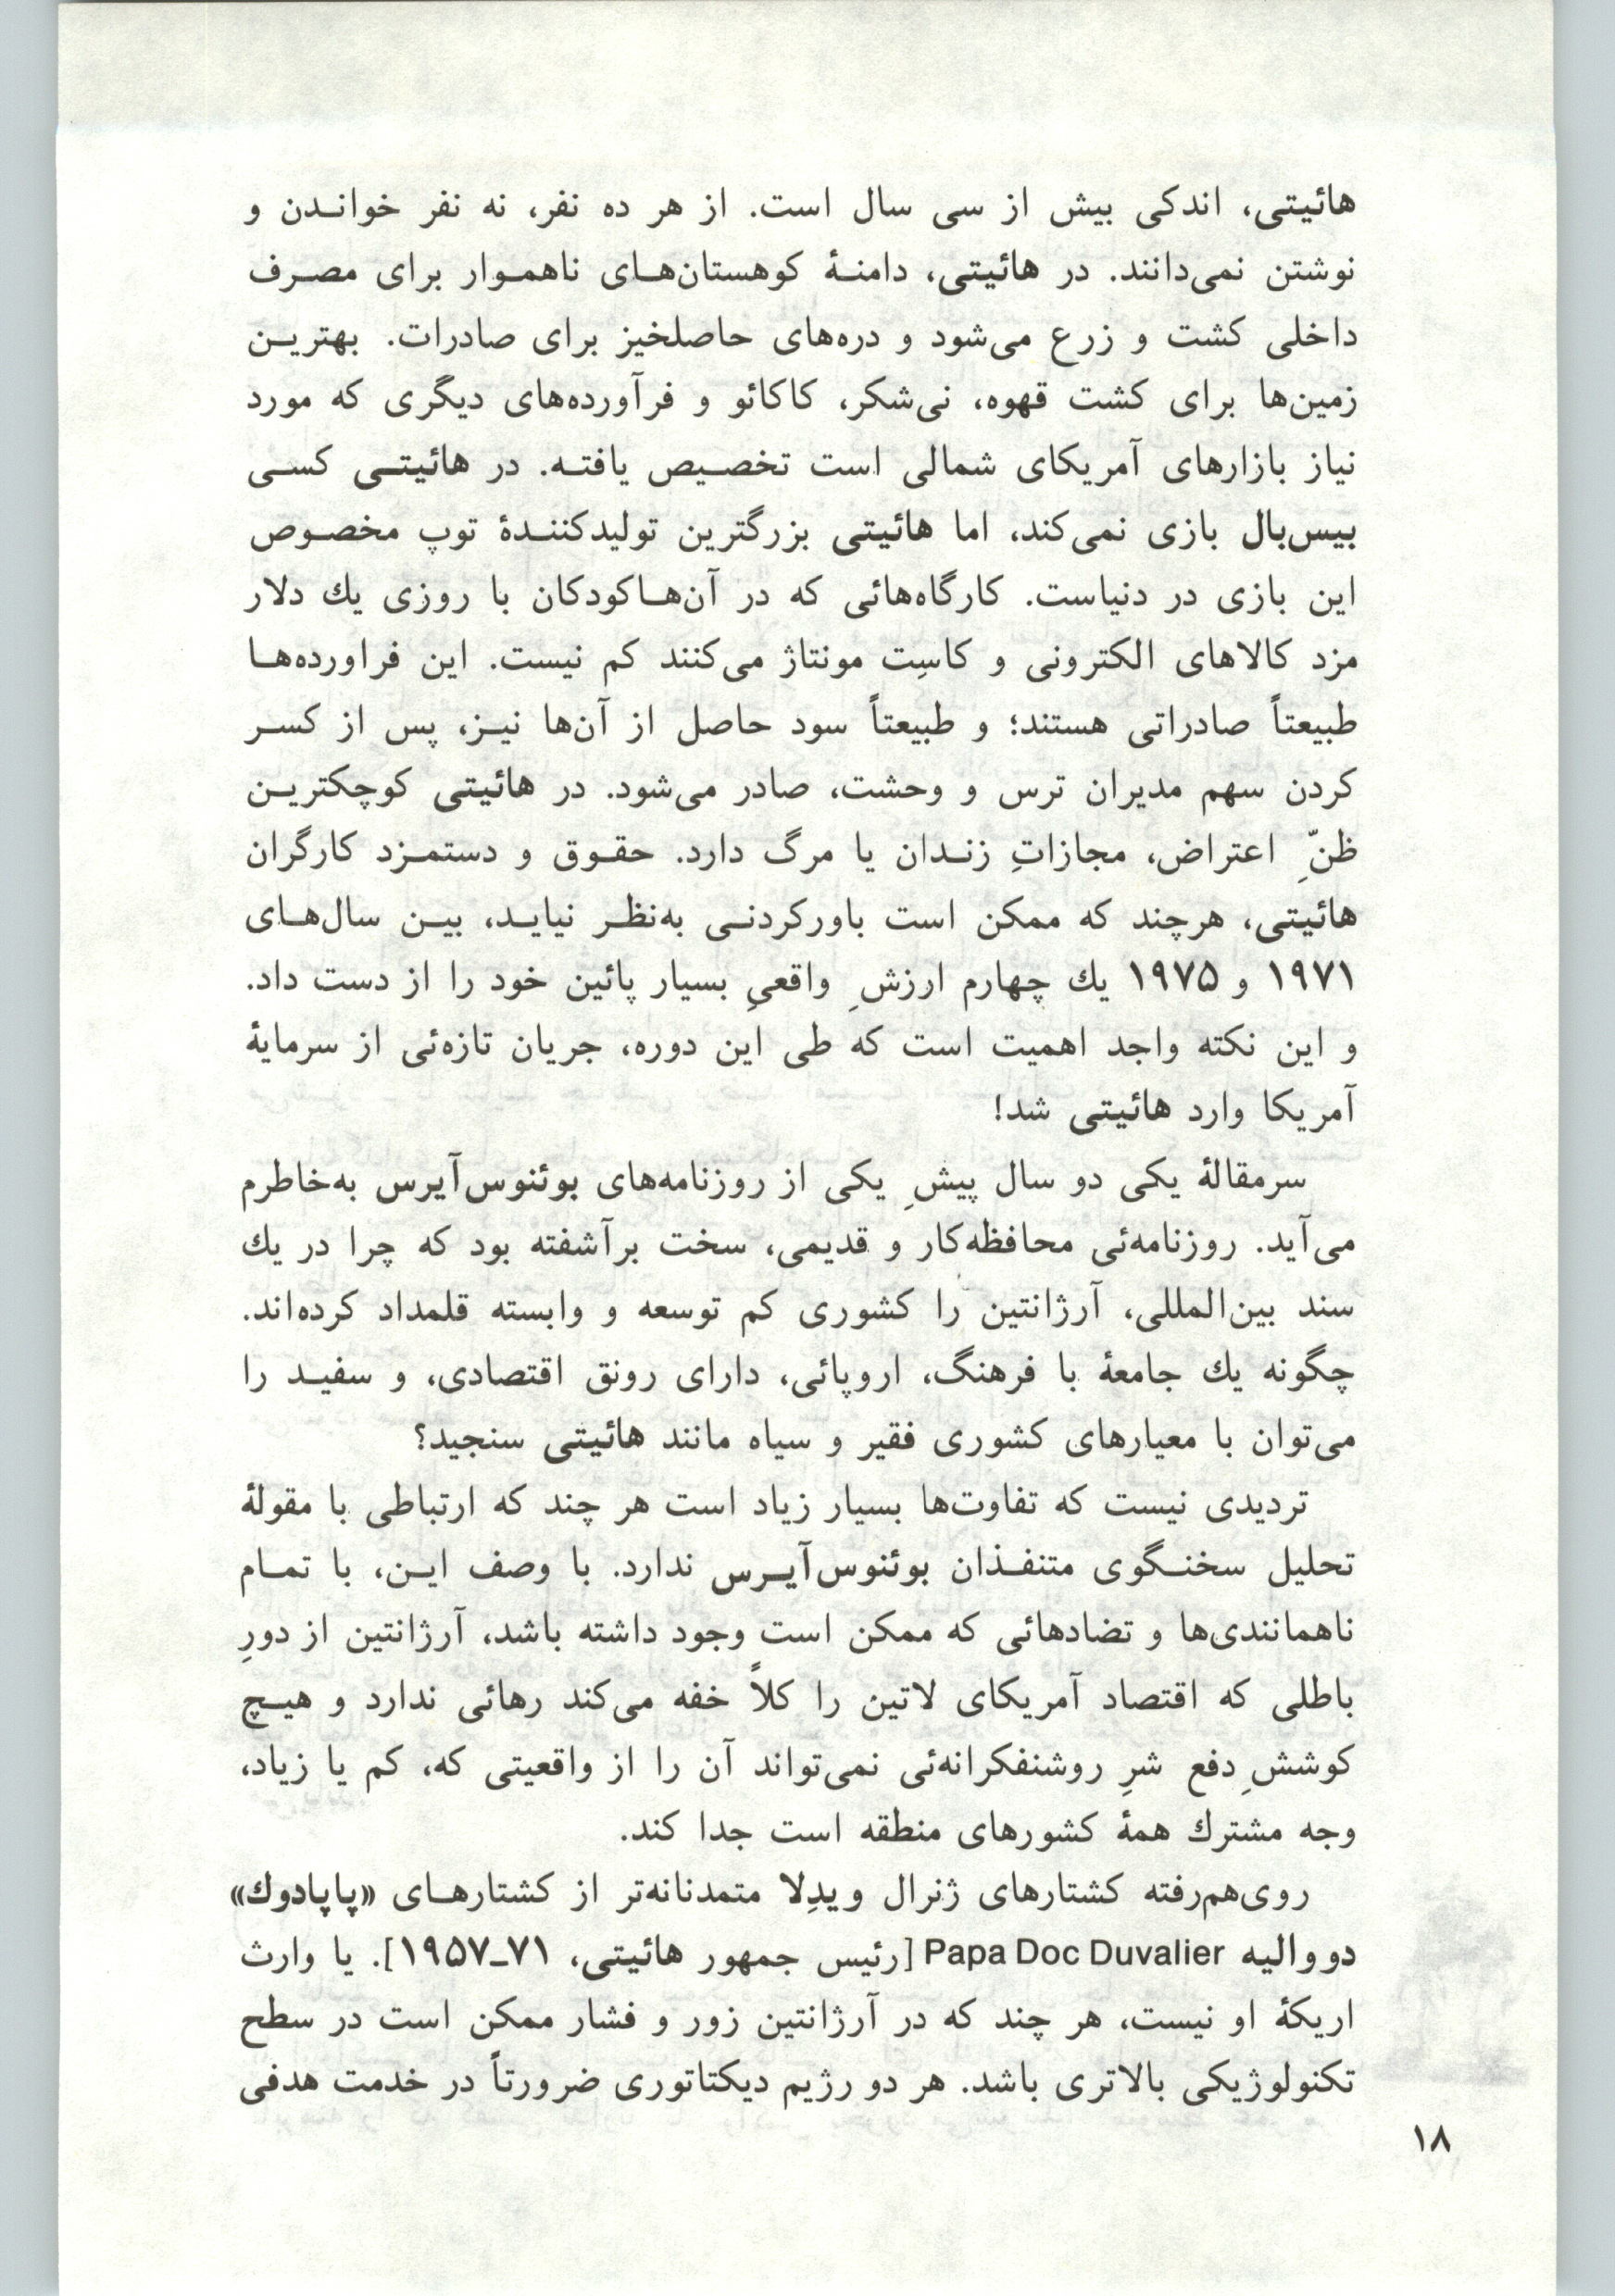 هائیتی، اندکی بیش از سی سال است. از هر ده نفر، نه نفر خواندن و
نوشتن نمی‌دانند. در هائیتی، دامنهٔ کوهستان‌های ناهموار برای مصرف
داخلی کشت و زرع می‌شود و دره‌های حاصلخیز برای صادرات. بهترین
زمین‌ها برای کشت قهوه، نی‌شکر، کاکائو و فرآورده‌های دیگری که مورد
نیاز بازارهای آمریکای شمالی است تخصیص یافته. در هائیتی کسی
بیس‌بال بازی نمی‌کند، اما هائیتی بزرگترین تولیدکنندهٔ توپ مخصوص
این بازی در دنیاست. کارگاه‌هائی که در آن‌هاکودکان با روزی یك دلار
مزد کالاهای الکترونی و کاسِت مونتاژ می‌کنند کم نیست. این فراورده‌ها
طبیعتاً صادراتی هستند؛ و طبیعتاً سود حاصل از آن‌ها نیز، پس از کسر
کردن سهم مدیران ترس و وحشت، صادر می‌شود. در هائیتی کوچکترین
ظنّ‌ِ اعتراض، مجازاتِ زندان یا مرگ دارد. حقوق و دستمزد کارگران
هائیتی، هرچند که ممکن است باورکردنی به‌نظر نیاید، بین سال‌های
۱۹۷۱ و ۱۹۷۵ یك چهارم ارزش‌ِ واقعیِ بسیار پائین خود را از دست داد.
و این نکته واجد اهمیت است که طی این دوره، جریان تازه‌ئی از سرمایهٔ
آمریکا وارد هائیتی شد!
سرمقالهٔ یکی دو سال پیش‌ِ یکی از روزنامه‌های بوئنوس‌آیرس به‌خاطرم
می‌آید. روزنامه‌ئی محافظه‌کار و قدیمی، سخت برآشفته بود که چرا در یك
سند بین‌المللی، آرژانتین را کشوری کم توسعه و وابسته قلمداد کرده‌اند.
چگونه یك جامعهٔ با فرهنگ، اروپائی، دارای رونق اقتصادی، و سفید را
می‌توان با معیارهای کشوری فقیر و سیاه مانند هائیتی سنجید؟
تردیدی نیست که تفاوت‌ها بسیار زیاد است هر چند که ارتباطی با مقولهٔ
تحلیل سخنگوی متنفذان بوئنوس‌آیرس ندارد. با وصف این، با تمام
ناهمانندی‌ها و تضادهائی که ممکن است وجود داشته باشد، آرژانتین از دورِ
باطلی که اقتصاد آمریکای لاتین را کلاً خفه می‌کند رهائی ندارد و هیچ
کوشش‌ِ دفع شرِ روشنفکرانه‌ئی نمی‌تواند آن را از واقعیتی که، کم یا زیاد،
وجه مشترك همهٔ کشورهای منطقه است جدا کند.
روی‌هم‌رفته کشتارهای ژنرال ویدِلا متمدنانه‌تر از کشتارهای «پاپادوك»
دووالیه Papa Doc Duvalier [رئیس جمهور هائیتی، ۷۱ـ۱۹۵۷]. یا وارث
اریکهٔ او نیست، هر چند که در آرژانتین زور و فشار ممکن است در سطح
تکنولوژیکی بالاتری باشد. هر دو رژیم دیکتاتوری ضرورتاً در خدمت هدفی
۱۸